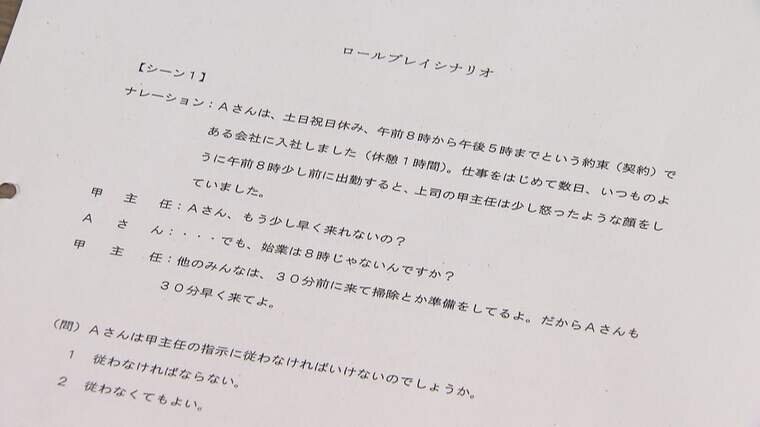 ロールプレイシナリオ
【シーン１】
ナレーション：Ａさんは、土日祝日休み、午前８時から午後５時までという約束（契約）で
ある会社に入社しました（休憩１時間）。仕事をはじめて数日、いつものよ
うに午前８時少し前に出勤すると、上司の甲主任は少し怒ったような顔をし
ていました。
甲主任：Ａさん、もう少し早く来れないの？
Ａさん：・・・でも、始業は８時じゃないんですか？
甲主任：他のみんなは、３０分前に来て掃除とか準備をしてるよ。だからＡさんも
３０分早く来てよ。
（問）Ａさんは甲主任の指示に従わなければいけないのでしょうか。
１　従わなければならない。
２　従わなくてもよい。